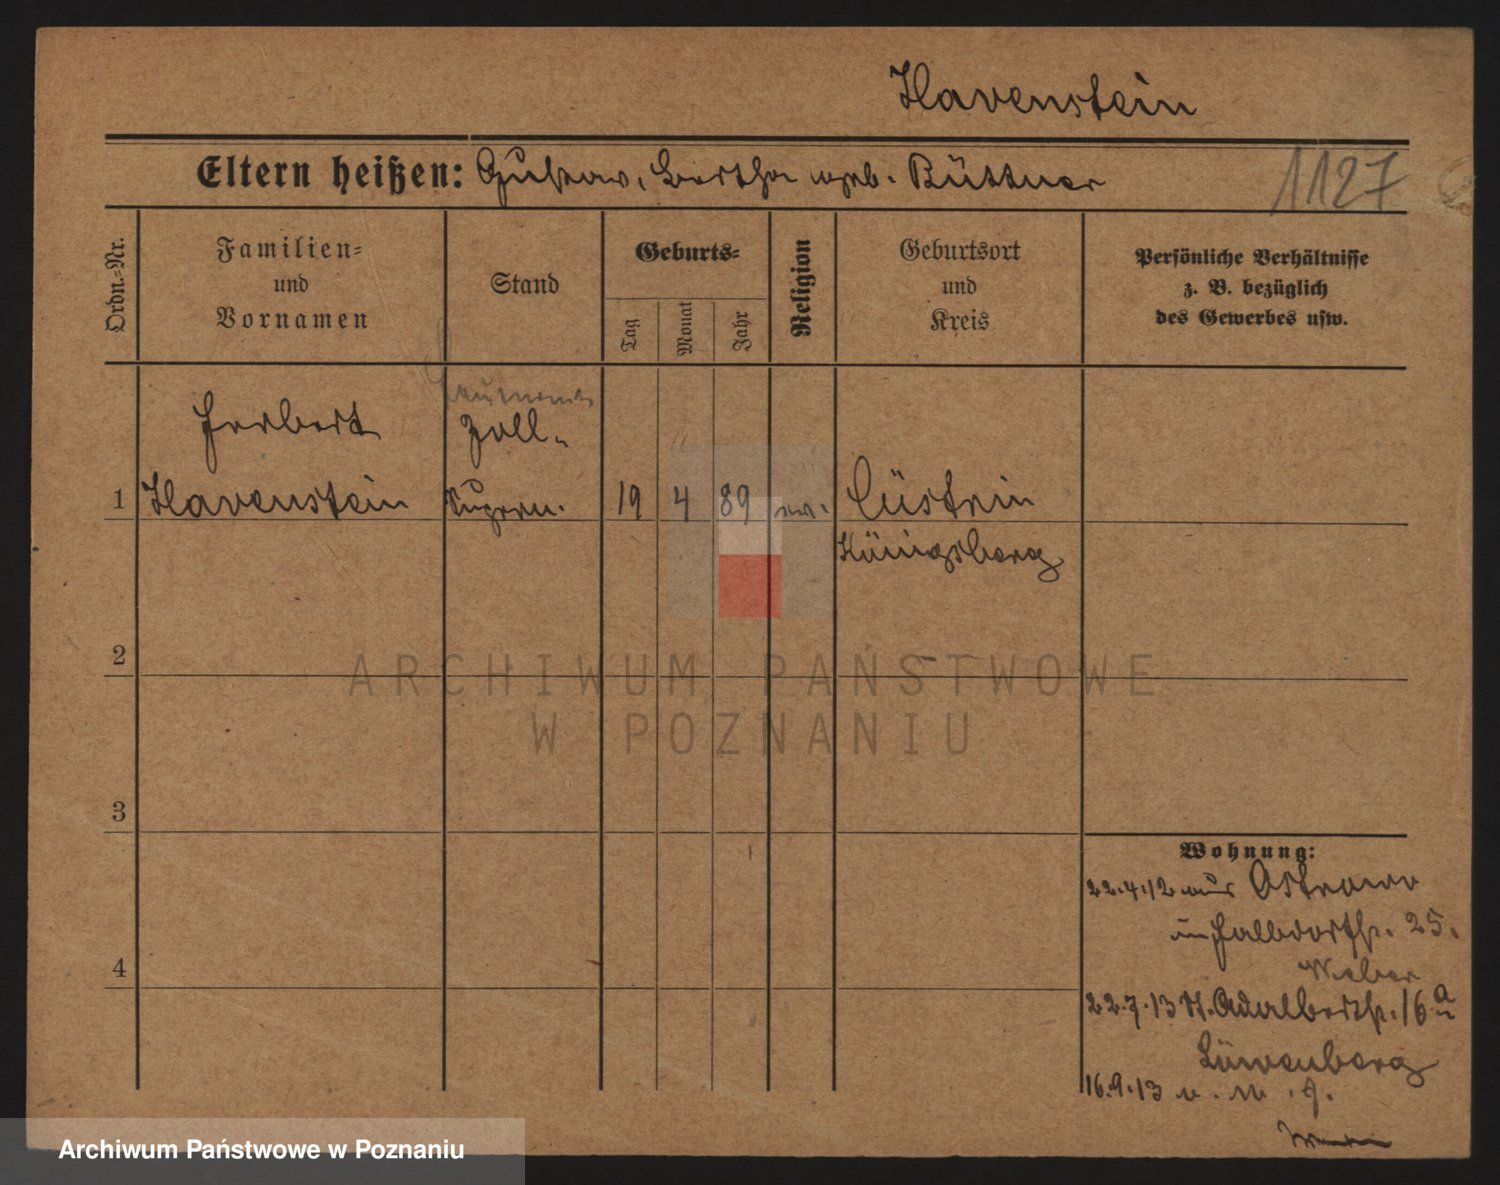 Havenstein
Eltern heißen: Gustav, Bertha geb. Büttner
1127
Ordn.-Nr.
Familien-
und
Vornamen
Stand
Geburts-
Tag
Monat
Jahr
Religion
Geburtsort
und
Kreis
Persönliche Verhältnisse
z. B. bezüglich
des Gewerbes usw.
Herbert
Zoll-
1 Havenstein Supern. 19 4 89 ev. Cüstrin
Königsberg
2
3
4
ARCHIWUM PAŃSTWOWE
W POZNANIU
Wohnung:
22.4.12 aus Ostrowo
in Halbdorfstr. 25.
Weber
22.7.13 St. Adalbertstr. 16a
Löwenberg
16.9.13
Archiwum Państwowe w Poznaniu